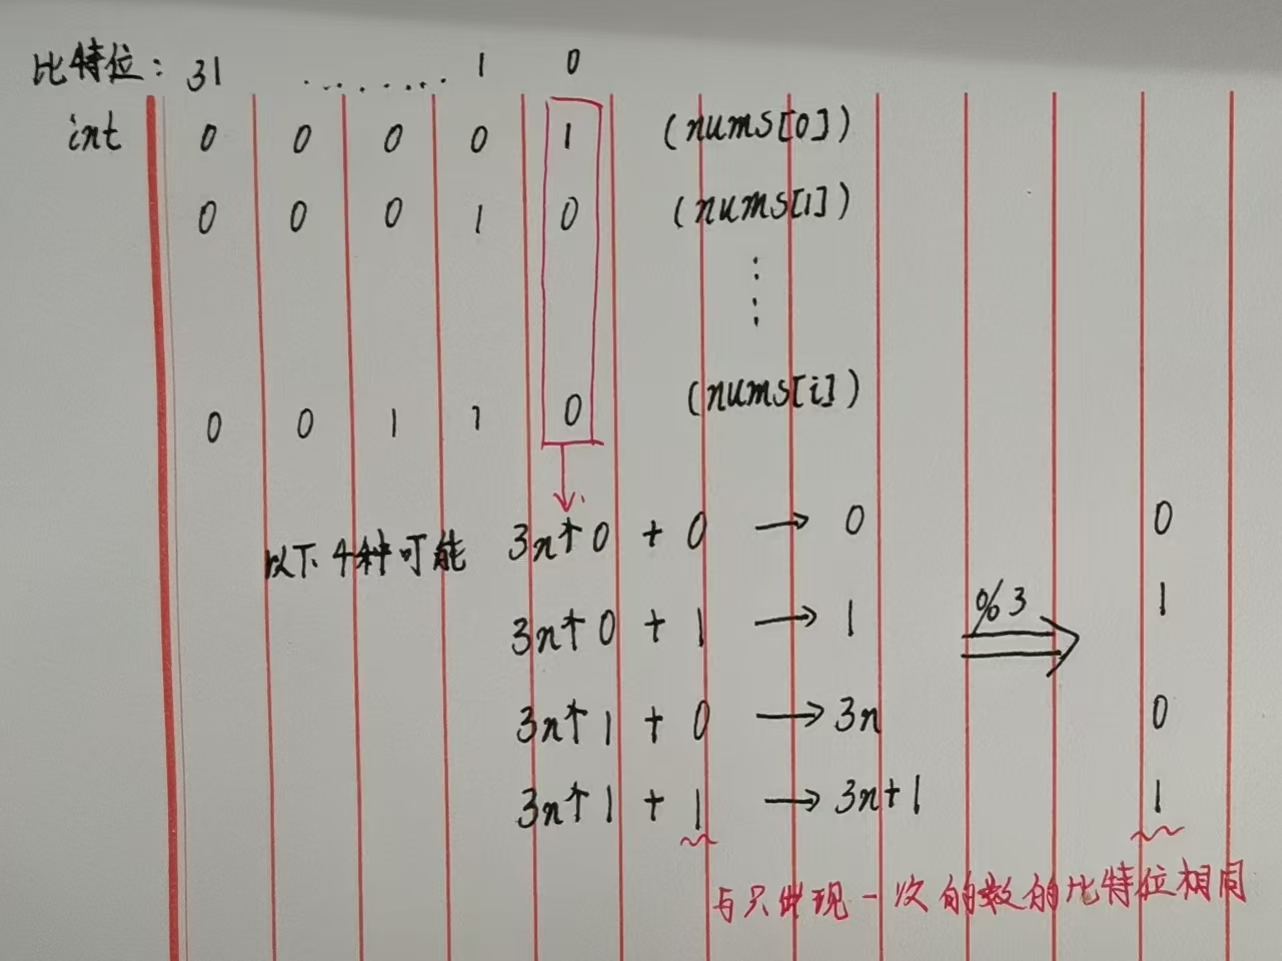 比特位: 31 ········ 1 0
int 0 0 0 0 1 (nums[0])
0 0 0 1 0 (nums[1])
⋮
0 0 1 1 0 (nums[i])
以下4种可能 3n个0 + 0 → 0 0
3n个0 + 1 → 1 %3 1
3n个1 + 0 → 3n 0
3n个1 + 1 → 3n+1 1
与只出现一次的数的比特位相同